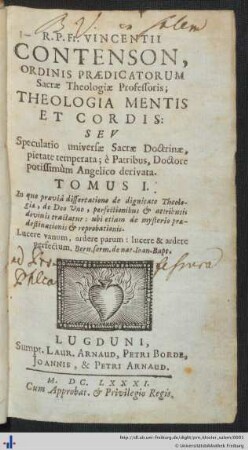 R.P.Fr. VINCENTII
CONTENSON,
ORDINIS PRÆDICATORUM
Sacræ Theologiæ Professoris;
THEOLOGIA MENTIS
ET CORDIS:
SEV
Speculatio universæ Sacræ Doctrinæ,
pietate temperata; è Patribus, Doctore
potissimùm Angelico derivata.
TOMUS I.
In quo præviâ dissertatione de dignitate Theolo-
gia, de Deo Uno, perfectionibus & attributis
devinis tractatur: ubi etiam de mysterio præ-
destinationis & reprobationis.
Lucere vanum, ardere parum: lucere & ardere
perfectum. Bern. serm. de nat. Ioan-Bapt.
LUGDUNI,
Sumpt. LAUR. ARNAUD, PETRI BORDE,
JOANNIS, & PETRI ARNAUD.
M. DC. LXXXI.
Cum Approbat. & Privilegio Regis.